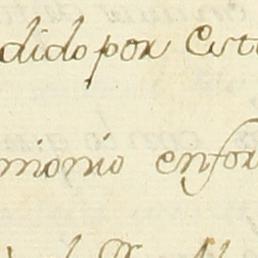 dido por Est
monio enfor